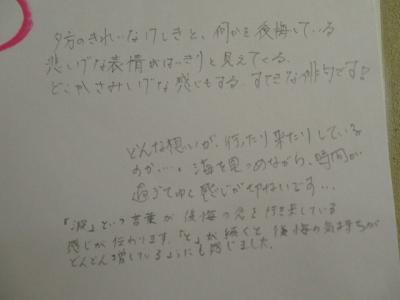 夕方のきれいなけしきと、何かを後悔している
悲しげな表情がはっきりと見えてくる。
どこかさみしげな感じもする。すてきな俳句です!
どんな想いが、行ったり来たりしている
のか…。海を見つめながら、時間が
過ぎてゆく感じが切ないです…
「波」という言葉が後悔の念を行き来している
感じが伝わります。「と」が続くと後悔の気持ちが
どんどん増しているようにも感じました。